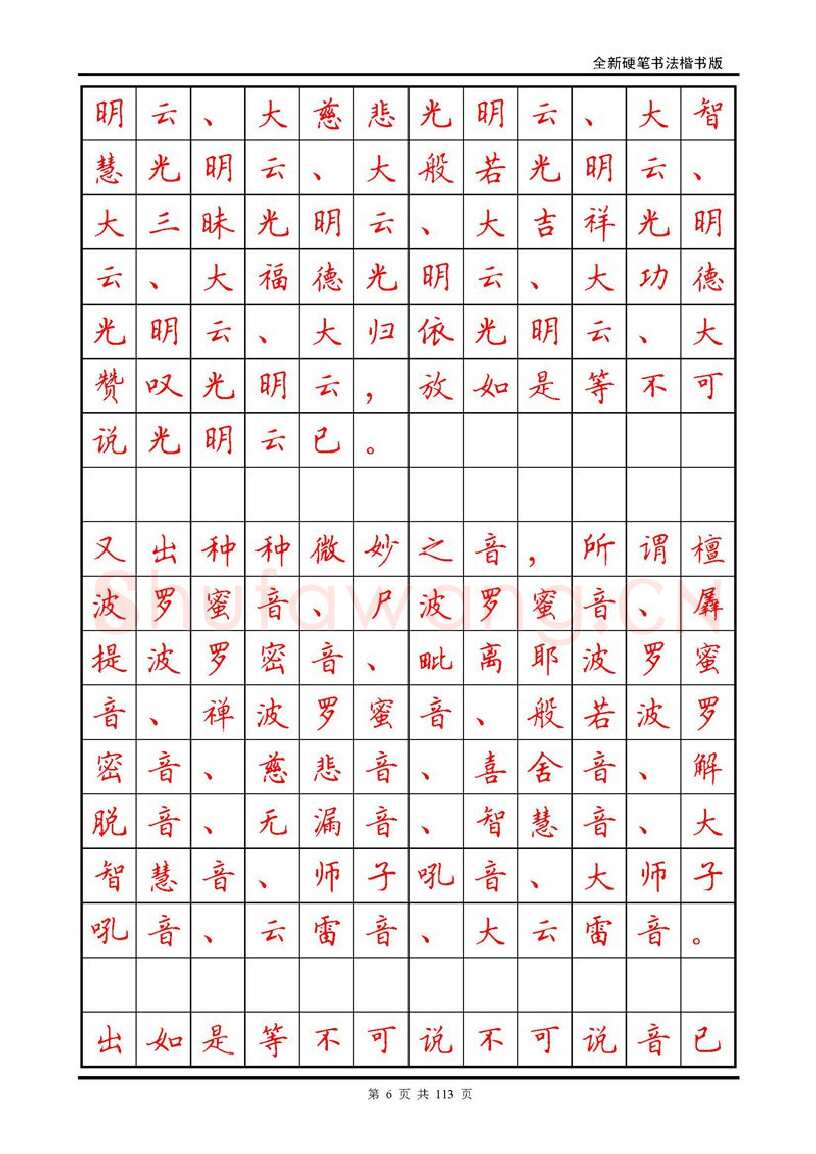 全新硬笔书法楷书版
明云、大慈悲光明云、大智
慧光明云、大般若光明云、
大三昧光明云、大吉祥光明
云、大福德光明云、大功德
光明云、大归依光明云、大
赞叹光明云，放如是等不可
说光明云已。
又出种种微妙之音，所谓檀
波罗蜜音、尸波罗蜜音、羼
提波罗密音、毗离耶波罗蜜
音、禅波罗蜜音、般若波罗
密音、慈悲音、喜舍音、解
脱音、无漏音、智慧音、大
智慧音、师子吼音、大师子
吼音、云雷音、大云雷音。
出如是等不可说不可说音已
Shufawang.CN
第 6 页 共 113 页